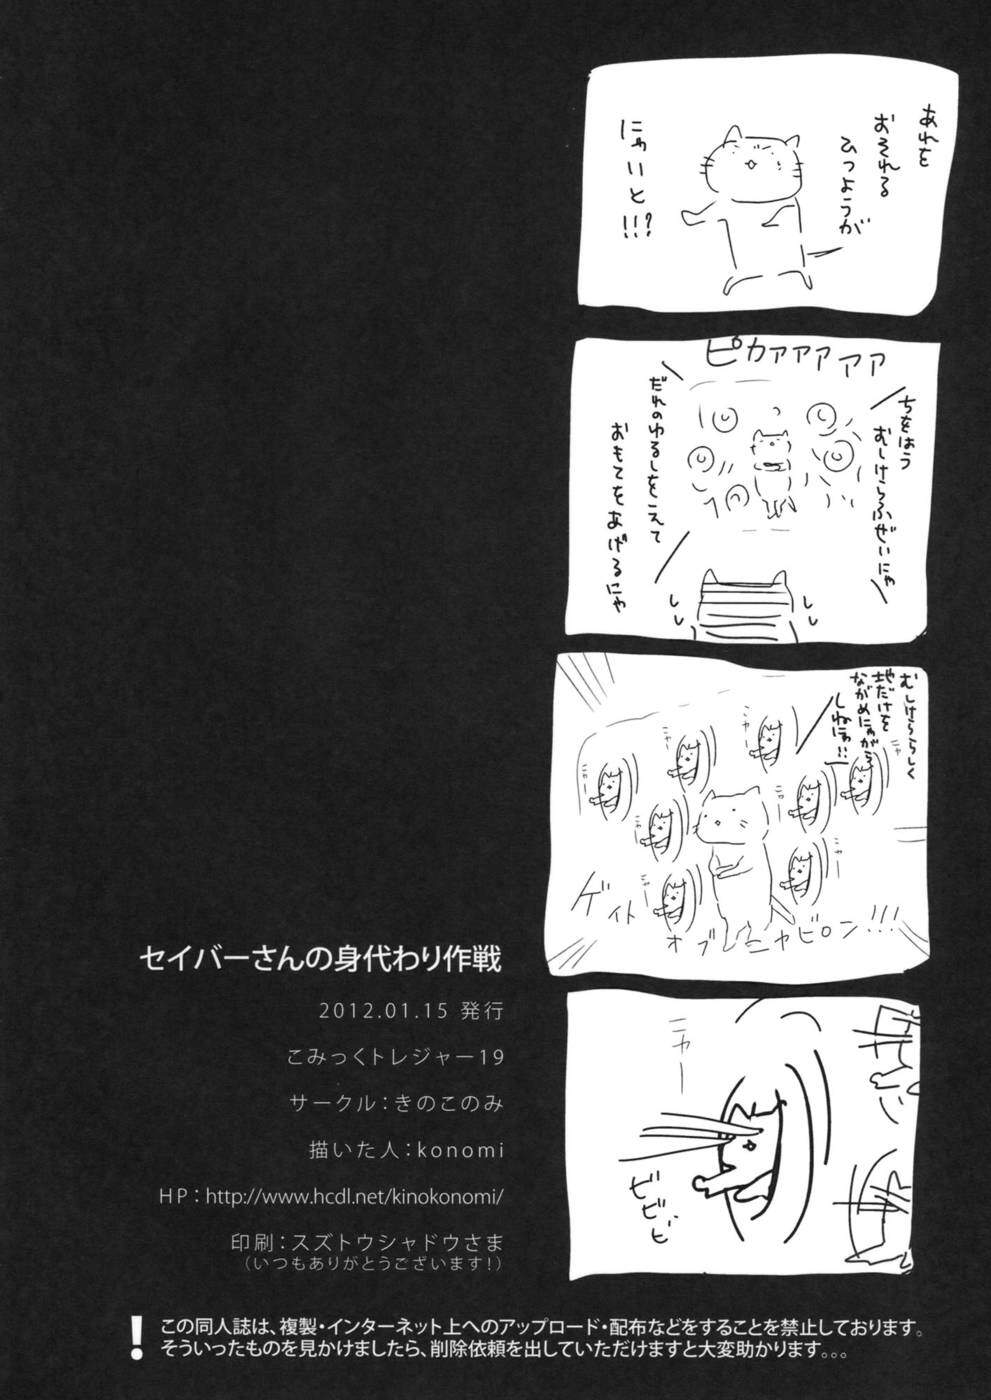 あれを
おそれる
ひつようが
にゃいと!!!?
ピカァァァァァ
ちをはう
むしけらふぜいにゃ
だれのゆるしをこえて
おもてをあげるにゃ
むしけららしく
地だけを
ながめにゃがら
しねにゃ!!
ニャー
ニャー
ニャー
ニャー
ニャー
ニャー
ニャー
ニャー
ゲイト
オブニャビロン!!!
ニャー
ビビビ
セイバーさんの身代わり作戦
2012.01.15 発行
こみっくトレジャー19
サークル：きのこのみ
描いた人：konomi
HP：http://www.hcdl.net/kinokonomi/
印刷：スズトウシャドウさま
（いつもありがとうございます！）
！この同人誌は、複製・インターネット上へのアップロード・配布などをすることを禁止しております。
そういったものを見かけましたら、削除依頼を出していただけますと大変助かります。。。